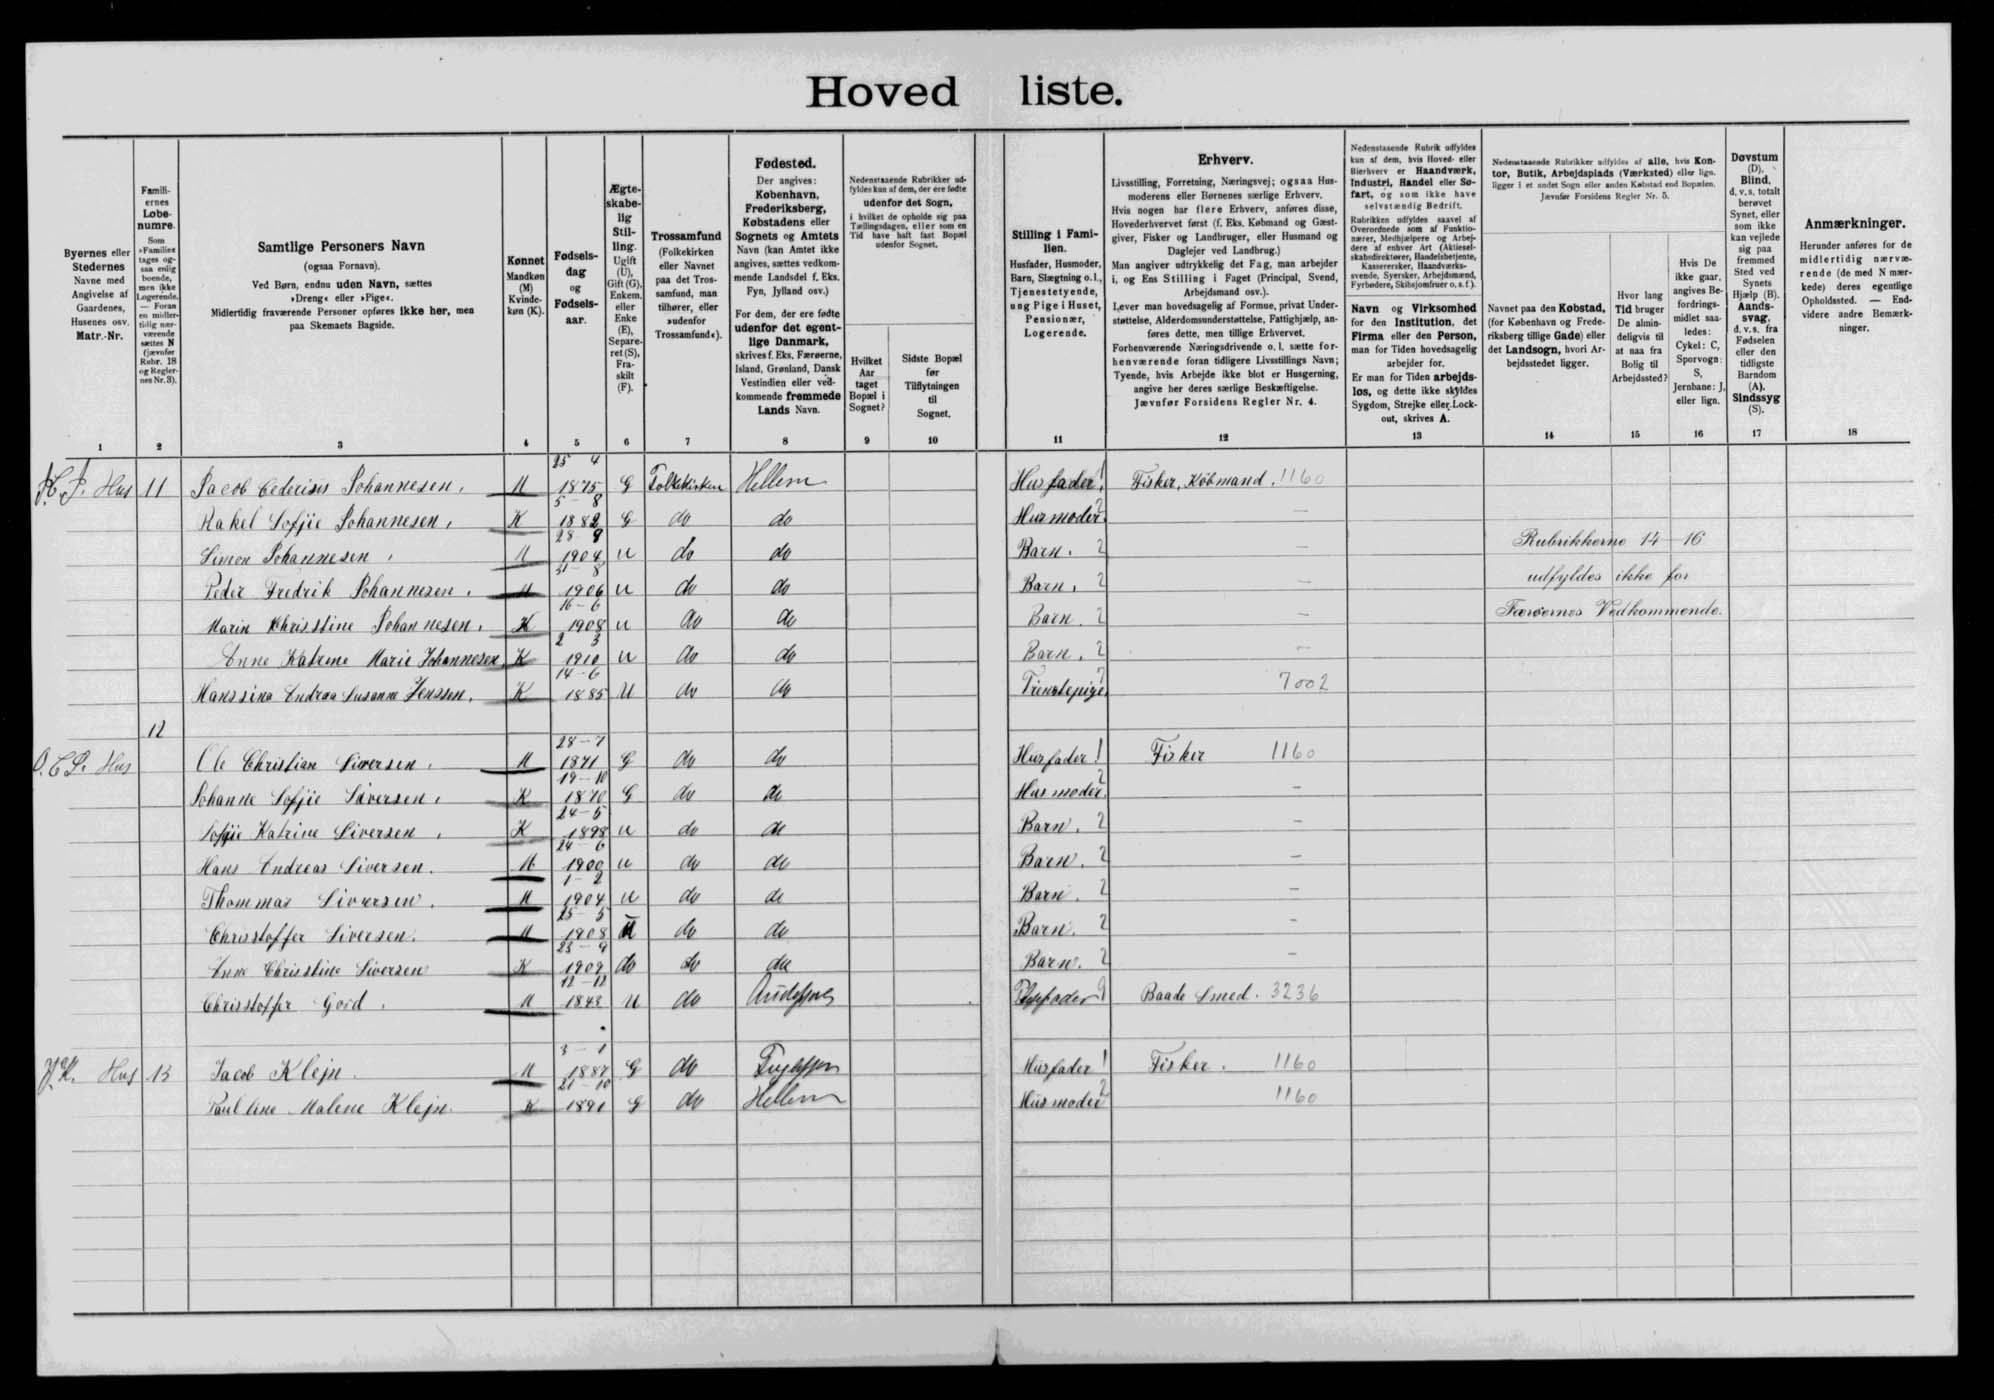 Hoved liste.
Byernes eller
Stedernes
Navne med
Angivelse af
Gaardenes,
Husenes osv.
Matr.-Nr.
1
Famili-
ernes
Løbe-
numre.
Som
»Familie«
tages og-
saa enlig
boende,
men ikke
Logerende.
— Foran
en midler-
tidig nær-
værende
sættes N
(jævnfør
Rubr. 18
og Regler-
nes Nr. 3).
2
Samtlige Personers Navn
(ogsaa Fornavn).
Ved Børn, endnu uden Navn, sættes
»Dreng« eller »Pige«.
Midlertidig fraværende Personer opføres ikke her, men
paa Skemaets Bagside.
3
Kønnet
Mandkøn
(M)
Kvinde-
køn (K).
4
Fødsels-
dag
og
Fødsels-
aar.
5
Ægte-
skabe-
lig
Stil-
ling.
Ugift
(U),
Gift (G),
Enkem.
eller
Enke
(E),
Separe-
ret (S),
Fra-
skilt
(F).
6
Trossamfund
(Folkekirken
eller Navnet
paa det Tros-
samfund, man
tilhører, eller
»udenfor
Trossamfund«).
7
Fødested.
Der angives:
København,
Frederiksberg,
Købstadens eller
Sognets og Amtets
Navn (kan Amtet ikke
angives, sættes vedkom-
mende Landsdel f. Eks.
Fyn, Jylland osv.)
For dem, der ere fødte
udenfor det egent-
lige Danmark,
skrives f. Eks. Færøerne,
Island, Grønland, Dansk
Vestindien eller ved-
kommende fremmede
Lands Navn.
8
Nedenstaaende Rubrikker ud-
fyldes kun af dem, der ere fødte
udenfor det Sogn,
i hvilket de opholde sig paa
Tællingsdagen, eller som en
Tid have haft fast Bopæl
udenfor Sognet.
Hvilket
Aar
taget
Bopæl i
Sognet?
9
Sidste Bopæl
før
Tilflytningen
til
Sognet.
10
Stilling i Fami-
lien.
Husfader, Husmoder,
Barn, Slægtning o.l.,
Tjenestetyende,
ung Pige i Huset,
Pensionær,
Logerende.
11
Erhverv.
Livsstilling, Forretning, Næringsvej; ogsaa Hus-
moderens eller Børnenes særlige Erhverv.
Hvis nogen har flere Erhverv, anføres disse,
Hovederhvervet først (f. Eks. Købmand og Gæst-
giver, Fisker og Landbruger, eller Husmand og
Daglejer ved Landbrug.)
Man angiver udtrykkelig det Fag, man arbejder
i, og Ens Stilling i Faget (Principal, Svend,
Arbejdsmand osv.).
Lever man hovedsagelig af Formue, privat Under-
støttelse, Alderdomsunderstøttelse, Fattighjælp, an-
føres dette, men tillige Erhvervet.
Forhenværende Næringsdrivende o. l. sætte for-
henværende foran tidligere Livsstillings Navn;
Tyende, hvis Arbejde ikke blot er Husgerning,
angive her deres særlige Beskæftigelse.
Jævnfør Forsidens Regler Nr. 4.
12
Nedenstaaende Rubrik udfyldes
kun af dem, hvis Hoved- eller
Bierhverv er Haandværk,
Industri, Handel eller Sø-
fart, og som ikke have
selvstændig Bedrift.
Rubrikken udfyldes saavel af
Overordnede som af Funktio-
nærer, Medhjælpere og Arbej-
dere af enhver Art (Aktiesel-
skabsdirektører, Handelsbetjente,
Kasserersker, Haandværks-
svende, Syersker, Arbejdsmænd,
Fyrbødere, Skibsjomfruer o. s. f.).
Navn og Virksomhed
for den Institution, det
Firma eller den Person,
man for Tiden hovedsagelig
arbejder for.
Er man for Tiden arbejds-
løs, og dette ikke skyldes
Sygdom, Strejke eller Lock-
out, skrives A.
13
Nedenstaaende Rubrikker udfyldes af alle, hvis Kon-
tor, Butik, Arbejdsplads (Værksted) eller lign.
ligger i et andet Sogn eller anden Købstad end Bopælen.
Jævnfør Forsidens Regler Nr. 5.
Navnet paa den Købstad,
(for København og Frede-
riksberg tillige Gade) eller
det Landsogn, hvori Ar-
bejdsstedet ligger.
14
Hvor lang
Tid bruger
De almin-
deligvis til
at naa fra
Bolig til
Arbejdssted?
15
Hvis De
ikke gaar,
angives Be-
fordrings-
midlet saa-
ledes:
Cykel: C,
Sporvogn:
S,
Jernbane: J,
eller lign.
16
Døvstum
(D).
Blind,
d. v. s. totalt
berøvet
Synet, eller
som ikke
kan vejlede
sig paa
fremmed
Sted ved
Synets
Hjælp (B).
Aands-
svag,
d. v. s. fra
Fødselen
eller den
tidligste
Barndom
(A).
Sindssyg
(S).
17
Anmærkninger.
Herunder anføres for de
midlertidig nærvæ-
rende (de med N mær-
kede) deres egentlige
Opholdssted. — End-
videre andre Bemærk-
ninger.
18
Hus 11 Jacob Johannesen, M 25 4 1875 G Folkekirken Hellem Husfader 1 Fisker, Købmand. 1160
Rakel Sofjie Johannesen, K 5-8 1882 G do do Husmoder 2 —
Simon Johannesen, M 28 9 1904 U do do Barn. 2 — Rubrikkerne 14-16
Peder Fredrik Johannesen, M 31-8 1906 U do do Barn, 2 — udfyldes ikke for
Marin Khrisstine Johannesen, K 16-6 1908 U do do Barn, 2 — Færøernes Vedkommende.
Anne Katrine Marie Johannesen K 2 3 1910 U do do Barn, 2 —
Hanssina Andrea Susanne Jenssen, K 14-6 1885 U do do 7 7002
12
O. C. S. Hus Ole Christian Siversen, M 28-7 1871 G do do Husfader 1 Fisker 1160
Johanne Sofjie Siversen, K 19-10 1870 G do do Husmoder 2 —
Sofjie Katrine Siversen, K 24-5 1898 U do do Barn, 2 —
Hans Andreas Siversen. M 24-6 1900 U do do Barn. 2 —
Thommas Siversen. M 1-2 1904 U do do Barn. 2 —
Chrisstoffer Siversen. M 25-5 1908 U do do Barn. 2 —
Anne Chrisstine Siversen K 23-9 1909 do do do Barn. 2 —
Chrisstoffer Gord. M 12-12 1843 U do 9 Baade Smed. 3236
Hus 13 Jacob Klejn. M 3-1 1887 G do Husfader 1 Fisker. 1160
Paulline Malene Klejn. K 21-10 1891 G do Hellem Husmoder 2 1160